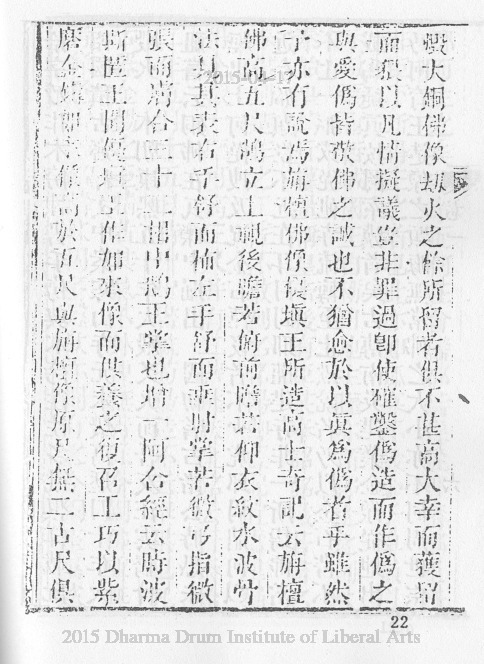 毀大銅佛像劫火之餘所留者俱不甚高大幸而獲留
而猥以凡情擬議豈非罪過卽使椎鑿僞造而作僞之
與愛僞皆敬佛之誠也不猶愈於以眞爲僞者乎雖然
亦有說焉旃檀佛像優塡王所造高士奇記云旃檀
佛高五尺鵠立上視後瞻若俯前瞻若仰衣紋水波骨
法見其表右手舒而植左手舒而垂肘掌皆微弓指微
張而膚合三十二相中鵝王掌也增一阿含經云時波
斯匿王聞優塡王作如來像而供養之復召工巧以紫
磨金鑄如來像高於五尺與旃檀像原尺無二古尺俱
22
2015 Dharma Drum Institute of Liberal Arts